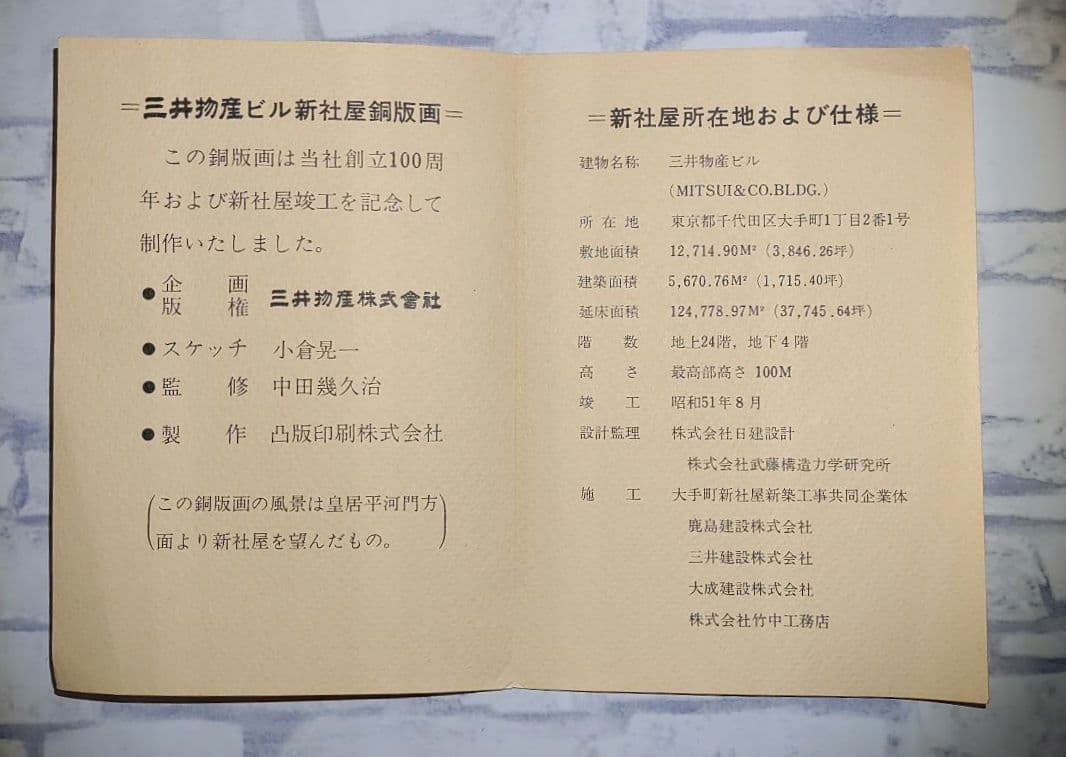 =三井物産ビル新社屋銅版画=
この銅版画は当社創立100周
年および新社屋竣工を記念して
制作いたしました。
●企画
版権 三井物産株式會社
●スケッチ 小倉晃一
●監修 中田幾久治
●製作 凸版印刷株式会社
(この銅版画の風景は皇居平河門方
面より新社屋を望んだもの。)
=新社屋所在地および仕様=
建物名称 三井物産ビル
(MITSUI&CO.BLDG.)
所在地 東京都千代田区大手町1丁目2番1号
敷地面積 12,714.90M² (3,846.26坪)
建築面積 5,670.76M² (1,715.40坪)
延床面積 124,778.97M² (37,745.64坪)
階数 地上24階, 地下4階
高さ 最高部高さ 100M
竣工 昭和51年8月
設計監理 株式会社日建設計
株式会社武藤構造力学研究所
施工 大手町新社屋新築工事共同企業体
鹿島建設株式会社
三井建設株式会社
大成建設株式会社
株式会社竹中工務店